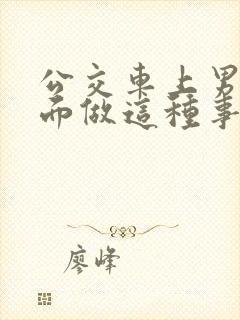 公交車上男
而做這種事
廖峰